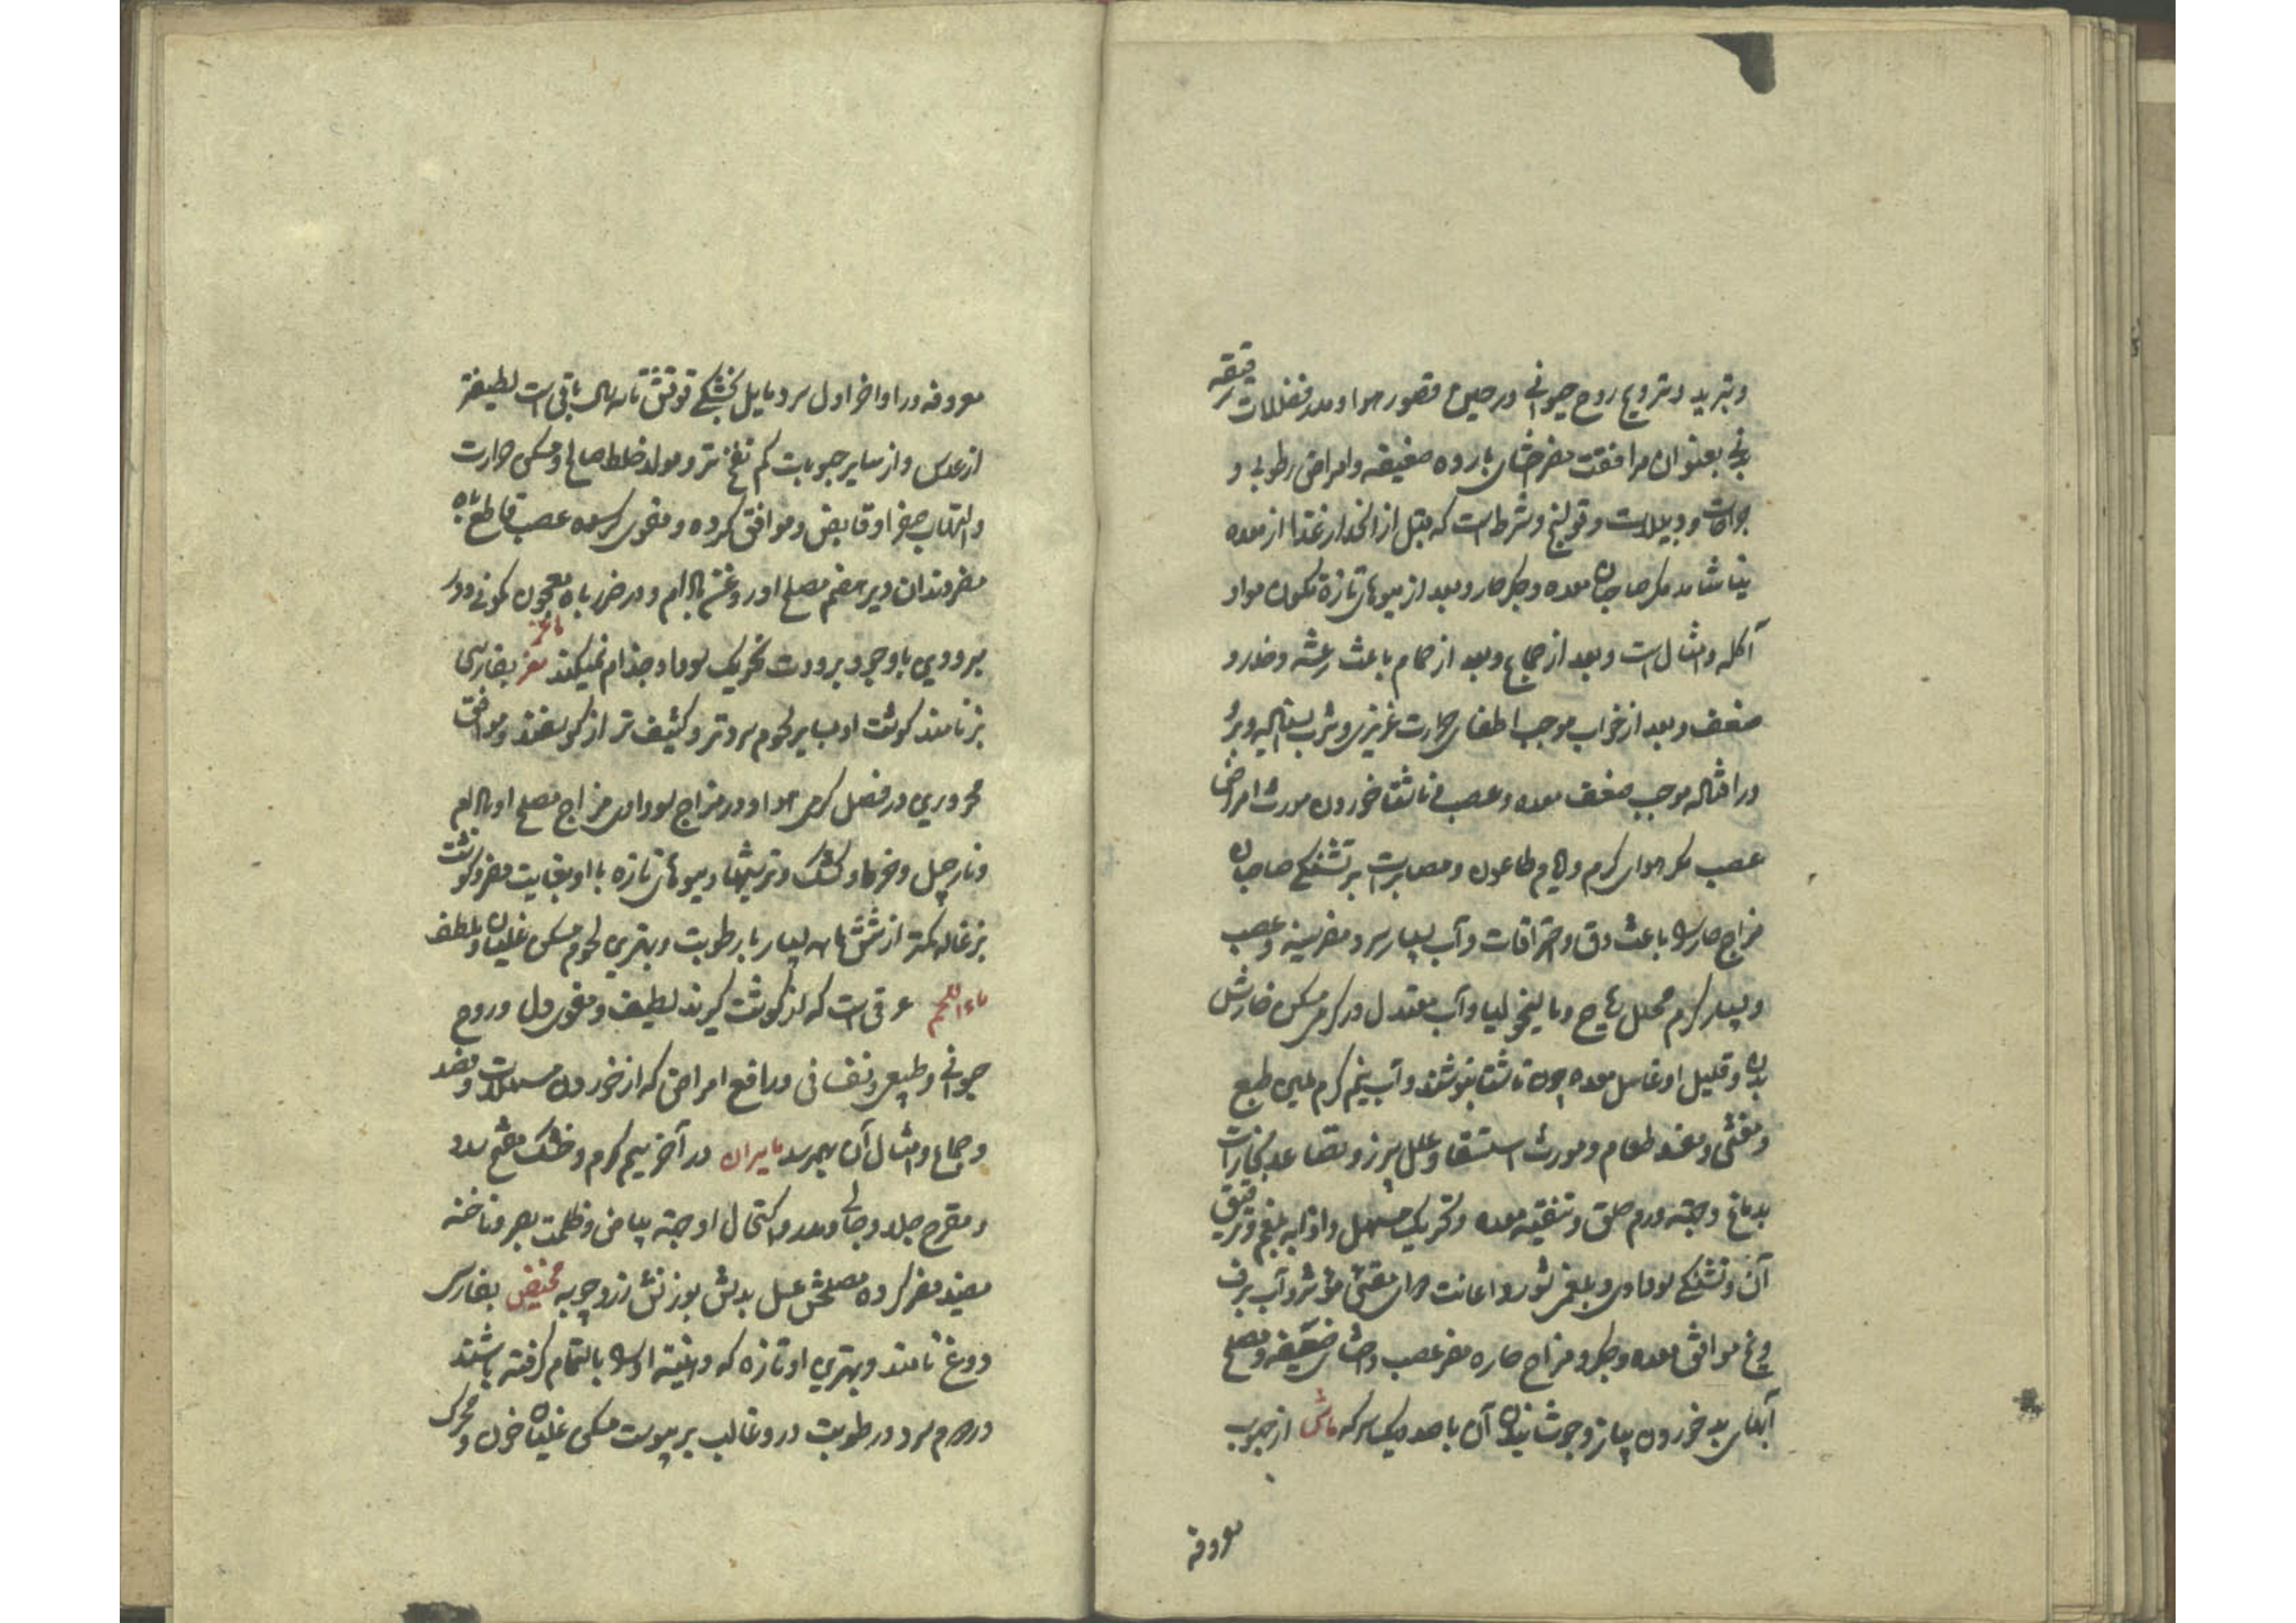 و تبرید و ترویح روح حیوانی در حین قصور هوا و مدر فضلات رقیقه
بدنی بعنوان مرافقت مضر احشای بارده ضعیفه و امراض رطوبی و
جراحات و دبیلات و قولنج و شرط است که قبل از انحدار غذا از معده
نیاشامد مکر صاحبان معده و جکر حار و بعد از میوهای تازه مکون مواد
آکله و امثال است و بعد از جماع و بعد از حمام باعث رعشه و خدر و
ضعف و بعد از خواب موجب اطفای حرارت غریزی و شرب
در اثناله موجب ضعف معده و عصب و ناشتا خوردن مورث امراض
عصب مکر هوای کرم و ایام طاعون و مصابرت بر تشنکی صاحبان
مزاج حار را باعث دق و احتراقات و آب بسیار سرد مضر سینه و عصب
و بسیار کرم محلل ریاح و مالیخولیا و آب معتدل در کرمی مسکن خارش
بدن و قلیل او غاسل معده چون ناشتا بنوشند و آب نیم کرم ملین طبع
و مغثی و مفسد طعام و مورث استسقا و علل سپرز و تصاعد بخارات
بدماغ و جهة ورم حلق و تنقیه معده و تحریک مسهل و اذابه بلغم و ترقیق
آن و تشنکی سوداوی و بلغمی شور و اعانت دوای مقئی مؤثر و آب برف
و یخ موافق معده و جکر و مزاج حاره مضر عصب و احشای ضعیفه و مصلح
آبهای بد خوردن پیاز و جوشانیدن آن با صد یک سرکه ماش از حبوب
معروفه
معروفه در اواخر اول سرد و مایل بخشکی قوتش تا سه سال باقی است لطیفتر
از عدس و از سایر حبوبات کم نفخ تر و مولد خلط صالح و مسکن حرارت
و التهاب صفرا و قابض و موافق کرده و مقوی عصب قاطع باه
مضر دندان دیر هضم مصلح او روغن بادام و در ضرر باه معجون کمونی و در
مبرودین با وجود برودت تحریک سودا و جذام نمیکند ماعز معز بفارسی
بز نامند کوشت او بسایر لحوم سردتر و کثیف تر از کوسفند و موافق
محرورین در فصل کرمی هوا و در مزاج سوداوی مزاج مصلح او
و نارجیل و خرما و کشک و ترشیها و میوهای تازه با او بغایت مضر و کوشت
بزغاله کمتر از شش ماهه بسیار با رطوبت و بهترین لحوم مسکن غلیان و ملطف
ماء اللحم عرقی است که از کوشت کیرند لطیف و مقوی دل و روح
حیوانی و طبیعی و نفسانی و رافع امراض که از خوردن مسهلات و فصد
و جماع و امثال آن بهم رسد مامیران در آخر سیم کرم و خشک مفتح سدد
و مقرح جلد و جالی و مدر و اکتحال او جهة بیاض و ظلمت بصر و ناخنه
مفید مضر کرده مصلحش عسل بدلش بوزنش زردچوبه مخیض بفارسی
دوغ نامند و بهترین او تازه که دهنیة او را بالتمام کرفته باشند
در دوم سرد در رطوبت در و غالب بر یبوست مسکن غلیان خون و محرک